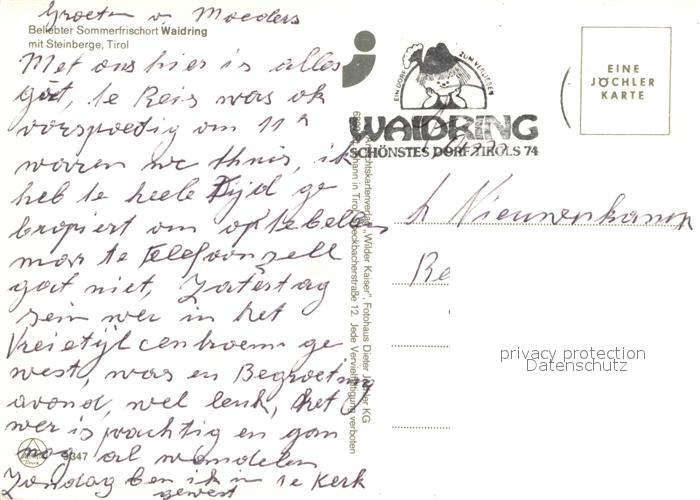 Groeten v Moeders
Beliebter Sommerfrischort Waidring
mit Steinberge, Tirol
Met ons hier is alles
goed, te Reis was ok
voorspoedig om 11 h
waren we thuis, ik
heb te heele Tijd ge
bropiert om op te bellen
mar te Telefoonzell
gat niet, Zaterstag
sein wer in het
Vreietijlcentroem ge
west, was en Begroeting
avond, wel leuk, het
wer is prachtig en gan
nog al wandelen
Zondag ben ik in te Kerk
gewest
3347
EIN DORF ZUM VERLIEBEN
WAIDRING
SCHÖNSTES DORF TIROLS 74
EINE
JÖCHLER
KARTE
"Wilder Kaiser", Fotohaus Dieter Jöchler KG
12. Jede Vervielfältigung verboten
Nieuwenkamp
Be
privacy protection
Datenschutz